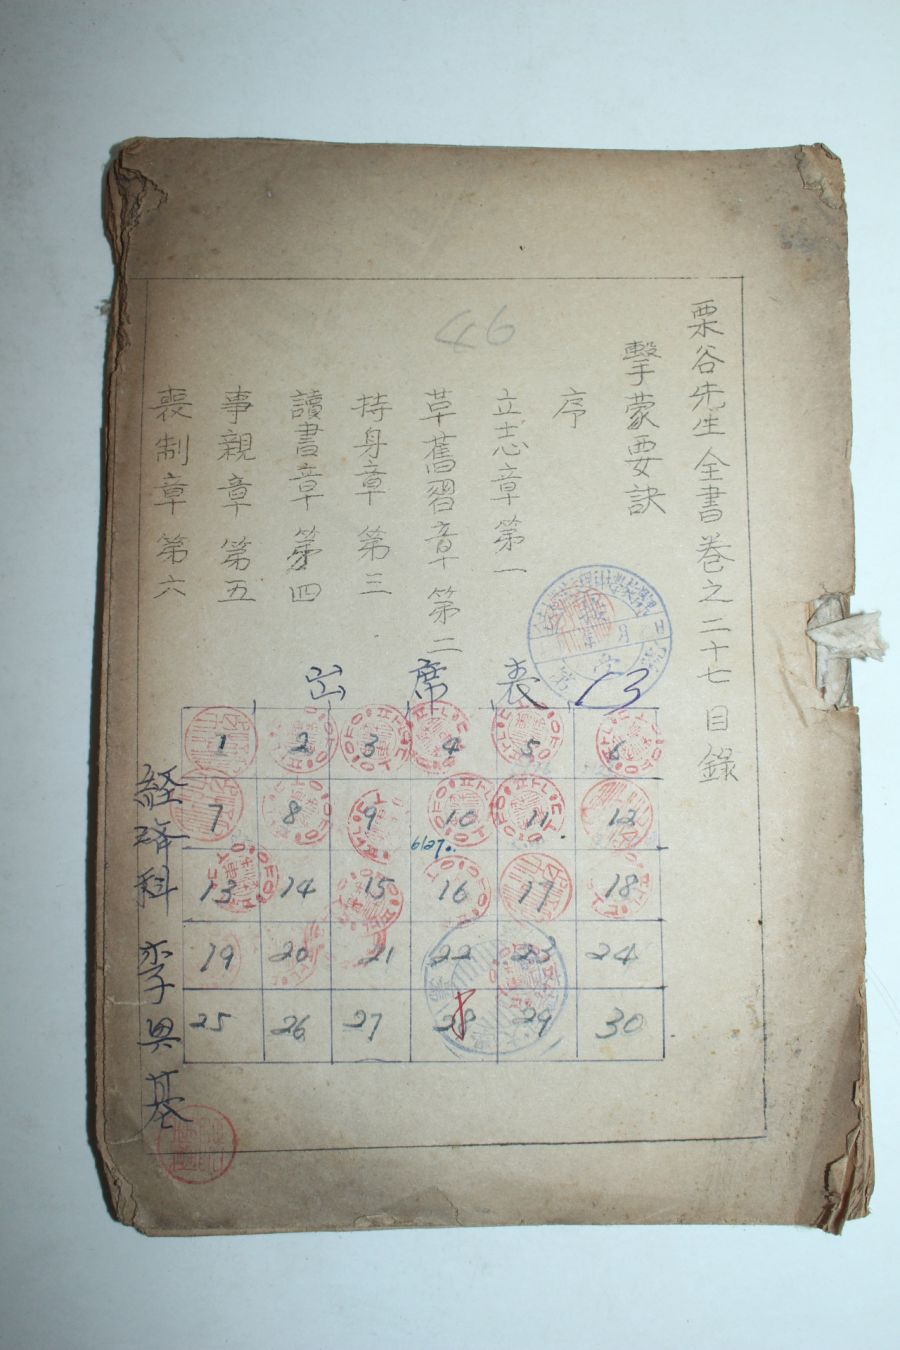 栗谷先生全書卷之二十七目錄
擊蒙要訣
序
立志章第一
革舊習章第二
持身章第三
讀書章第四
事親章第五
喪制章第六
46
出席表
13
1 2 3 4 5 6
7 8 9 10 11 12
6/27
13 14 15 16 17 18
19 20 21 22 23 24
25 26 27 28 29 30
経済科 李興基